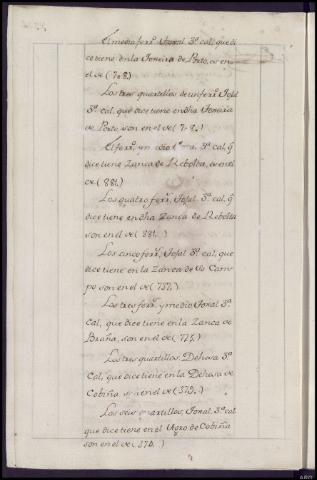 El medio ferr.º Toxal 3ª cal, que di
ce tiene en la Toxeira de Porto, es en
el de (708)
Los tres quartillos de un ferr.º Toxal
3ª cal, que dice tiene en dha Toxeira
de Porto, son en el de (708.)
El ferr.º 3ª cal, q̃
dice tiene Zanca de Rebolta, es en el
de (881.)
Los quatro ferr.º, Toxal 3ª cal, q̃
dice tiene en dha Zanca de Rebolta
son en el de (881.)
Los cinco ferr.º, Toxal 3ª cal, que
dice tiene en la Zanca de Cam-
po son en el de (757.)
Los tres ferr.º y medio Toxal 3ª
cal, que dice tiene en la Zanca de
Braña, son en el de (775.)
Los tres quartillos, Dehesa 3ª
Cal, que dice tiene en la Dehesa de
Cobiña son en el de (575.)
Los seis quartillos, Toxal, 3ª cal
que dice tiene en el Agro de Cobiña
son en el de (576.)